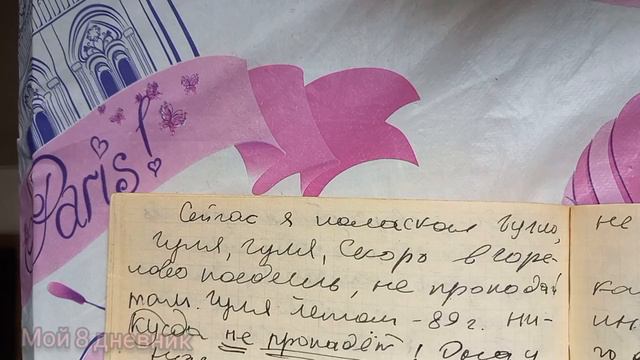 Paris!
Сейчас я полоскал Гулю,
Гуля, Гуля, скоро в Горе-
лово поедешь, не пропадай
там. Гуля летом - 89 г. ни-
куда не пропадёт!
не
Мой 8 дневник